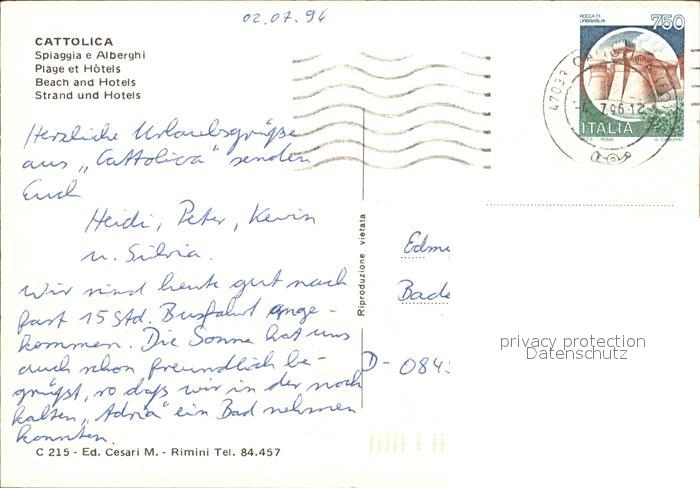 02.07.96
CATTOLICA
Spiaggia e Alberghi
Plage et Hôtels
Beach and Hotels
Strand und Hotels
ROCCA DI
URBISAGLIA
750
ITALIA
47033 CATTOLICA
7.96.12
Herzliche Urlaubsgrüße
aus „Cattolica" senden
Euch
Heidi, Peter, Kevin
u. Silvia.
Wir sind heute gut nach
fast 15 Std. Busfahrt ange-
kommen. Die Sonne hat uns
auch schon freundlich be-
grüßt, so daß wir in der noch
kalten „Adria" ein Bad nehmen
konnten.
Riproduzione vietata
Edm
Bade
D- 084
privacy protection
Datenschutz
C 215 - Ed. Cesari M. - Rimini Tel. 84.457